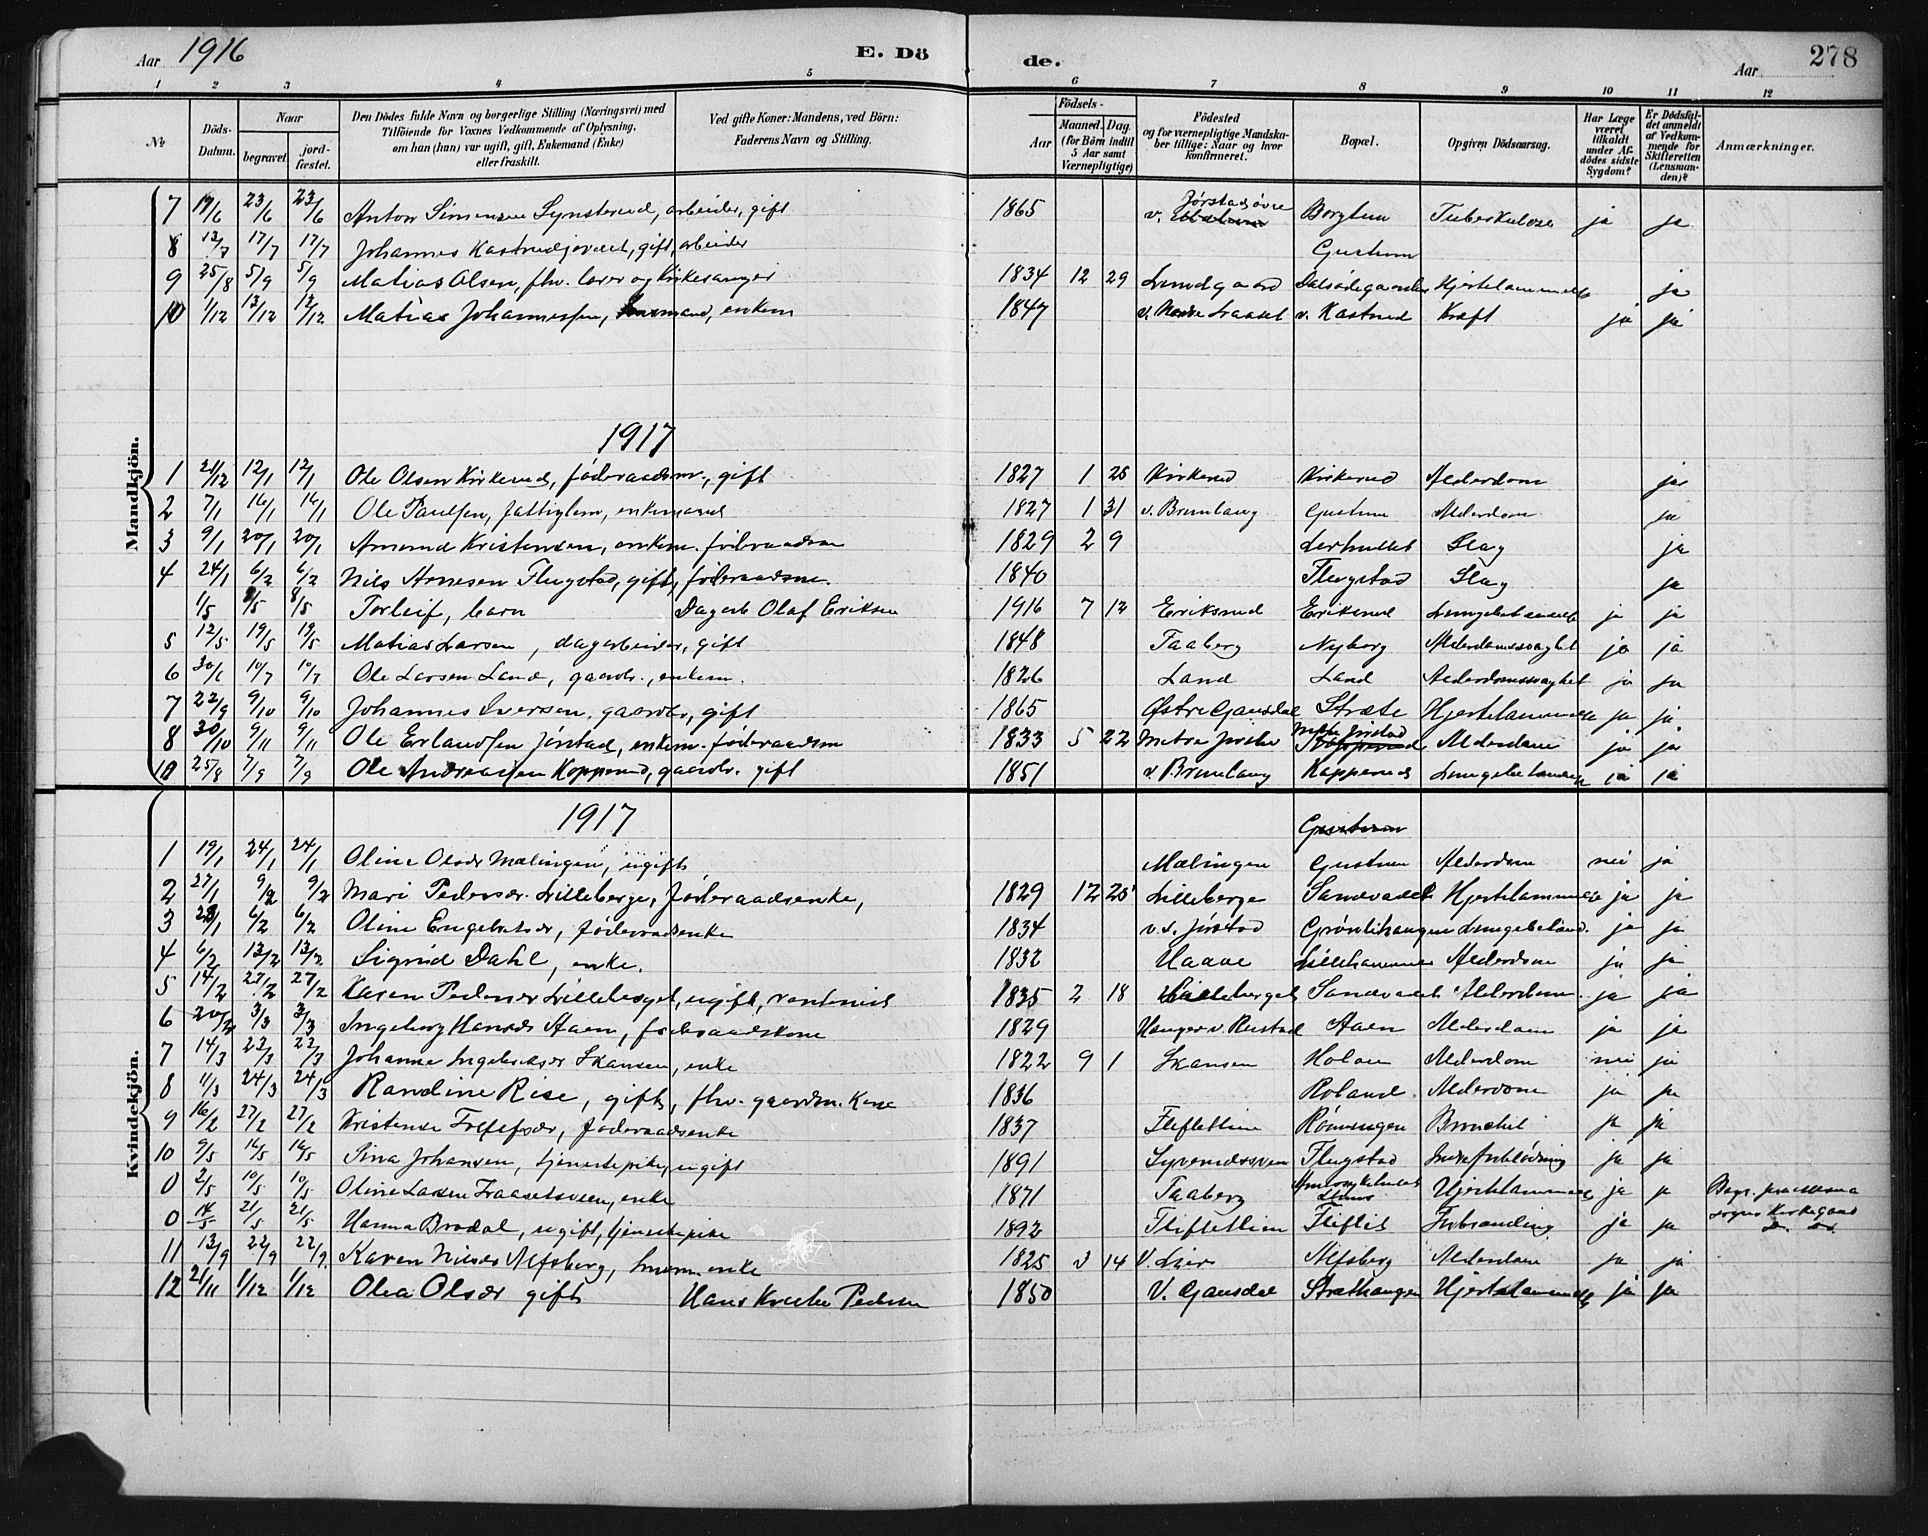 Aar 1916 E. Döde. Aar 278
1 2 3 4 5 6 7 8 9 10 11 12
No
Döds-Datum.
Naar
begravet.
jord-fæstet.
Den Dödes fulde Navn og borgerlige Stilling (Næringsvei) med
Tilföiende for Voxnes Vedkommende af Oplysning,
om han (hun) var ugift, gift, Enkemand (Enke)
eller fraskilt.
Ved gifte Koner: Mandens, ved Börn:
Faderens Navn og Stilling.
Födsels-
Aar
Maaned. Dag.
(for Börn indtil
5 Aar samt
Værnepligtige)
Födested
og for værnepligtige Mandska-
ber tillige: Naar og hvor
konfirmeret.
Bopæl.
Opgiven Dödsaarsag.
Har Læge
været
tilkaldt
under Af-
dödes sidste
Sygdom?
Er Dödsfal-
det anmeldt
af Vedkom-
mende for
Skifteretten
(Lensman-
den)?
Anmærkninger.
Mandkjön.
7 19/6 23/6 23/6 Anton Simensen Lynsterud, arbeider, gift 1865 v. Jørstadsøvre Borgtun Tuberkulose ja ja
8 13/7 17/7 17/7 Johannes Kastrudjordet, gift, arbeider Gustum
9 25/8 5/9 5/9 Matias Olsen, fhv. lærer og kirkesanger 1834 12 29 Lundgaard Hjertelammelse ja
10 1/12 13/12 13/12 Matias Johannessen, enkem 1847 v. Nordre Laaset v. Kastrud Kræft ja ja
1917
1 21/12 12/1 12/1 Ole Olsen Kirkerud, føderaadsm., gift 1827 1 25 Kirkerud Kirkerud Alderdom ja
2 7/1 16/1 16/1 Ole Paulsen, fattiglem, enkemand 1827 1 31 v. Brunlaug Gustum Alderdom ja
3 9/1 20/1 20/1 Amund Kristensen, enkem. føderaadsm 1829 2 9 Lerhullet Slag ja
4 24/1 6/2 6/2 Nils Arnesen Flugstad, gift, føderaadsm. 1840 Flugstad Slag ja
1/5 8/5 8/5 Torleif, barn Dagarb Olaf Eriksen 1916 7 12 Eriksrud Eriksrud Lungebetændelse ja ja
5 12/5 19/5 19/5 Matias Larsen, dagarbeider, gift 1848 Faaberg Nyborg Alderdomssvaghet ja ja
6 30/6 10/7 10/7 Ole Larsen Land, gaardbr., enkem. 1826 Land Land Alderdomssvaghet ja ja
7 22/9 9/10 9/10 Johannes Iversen, gaardbr, gift 1865 Østre Gausdal Stræte Hjertelammelse ja ja
8 30/10 9/11 9/11 Ole Erlandsen Jørstad, enkem. føderaadsm 1833 5 22 Metre Jørstad Metre Jørstad Alderdom ja ja
10 25/8 7/9 7/9 Ole Andreassen Kopperud, gaardbr. gift 1851 v. Brunlaug Kopperud Lungebetændelse ja ja
Kvindekjön.
1917
Gustum
1 19/1 24/1 24/1 Oline Olsdr Mælingen, ugift Mælingen Gustum Alderdom nei ja
2 27/1 9/2 9/2 Mari Pedersdr. Lilleberge, føderaadsenke, 1829 12 25 Lilleberge Sandvadet Hjertelammelse ja ja
3 28/1 6/2 6/2 Oline Engebretsdr, føderaadsenke 1834 v. s. Jørstad Grønlihaugen Lungebetænd. ja ja
4 6/2 13/2 13/2 Sigrid Dahl, enke. 1832 Haave Lillehammer Alderdom ja ja
5 14/2 27/2 27/2 Karen Pedersdr Lilleberget, ugift, 1835 2 18 Lilleberget Sandvadet Alderdom ja ja
6 20/2 3/3 3/3 Ingeborg Hansdr Aaen, føderaadskone 1829 Hauger v. Rustad Aaen Alderdom ja ja
7 14/3 23/3 23/3 Johanne Ingebretsdr Skansen, enke 1822 9 1 Skansen Holen Alderdom nei ja
8 11/3 24/3 24/3 Randine Rise, gift, fhv. gaardm. Kone 1836 Roland Alderdom ja ja
9 16/2 27/2 27/2 Kristense føderaadsenke 1837 Fliflettien Rønningen Bronchit ja ja
10 9/5 16/5 16/5 Sina Johansen, tjenestepike, ugift 1891 Lyverudssveen Flugstad Indre forblødning ja ja
0 2/5 10/5 10/5 Oline Larsen Fraasetsveen, enke 1871 Faaberg Hjertelammelse ja ja
0 14/5 21/5 21/5 Hanna Brodal, ugift, tjenestepike 1892 Fliflettien Fliflet Forbrænding ja ja
11 13/9 22/9 22/9 Karen Nilsdr Alfsberg, husm. enke 1825 3 14 V. Lier Alfsberg Alderdom ja ja
12 21/11 1/12 1/12 Olea Olsdr gift Hans Kristian Pedersen 1850 V. Gausdal Stræthaugen Hjertelammelse ja ja